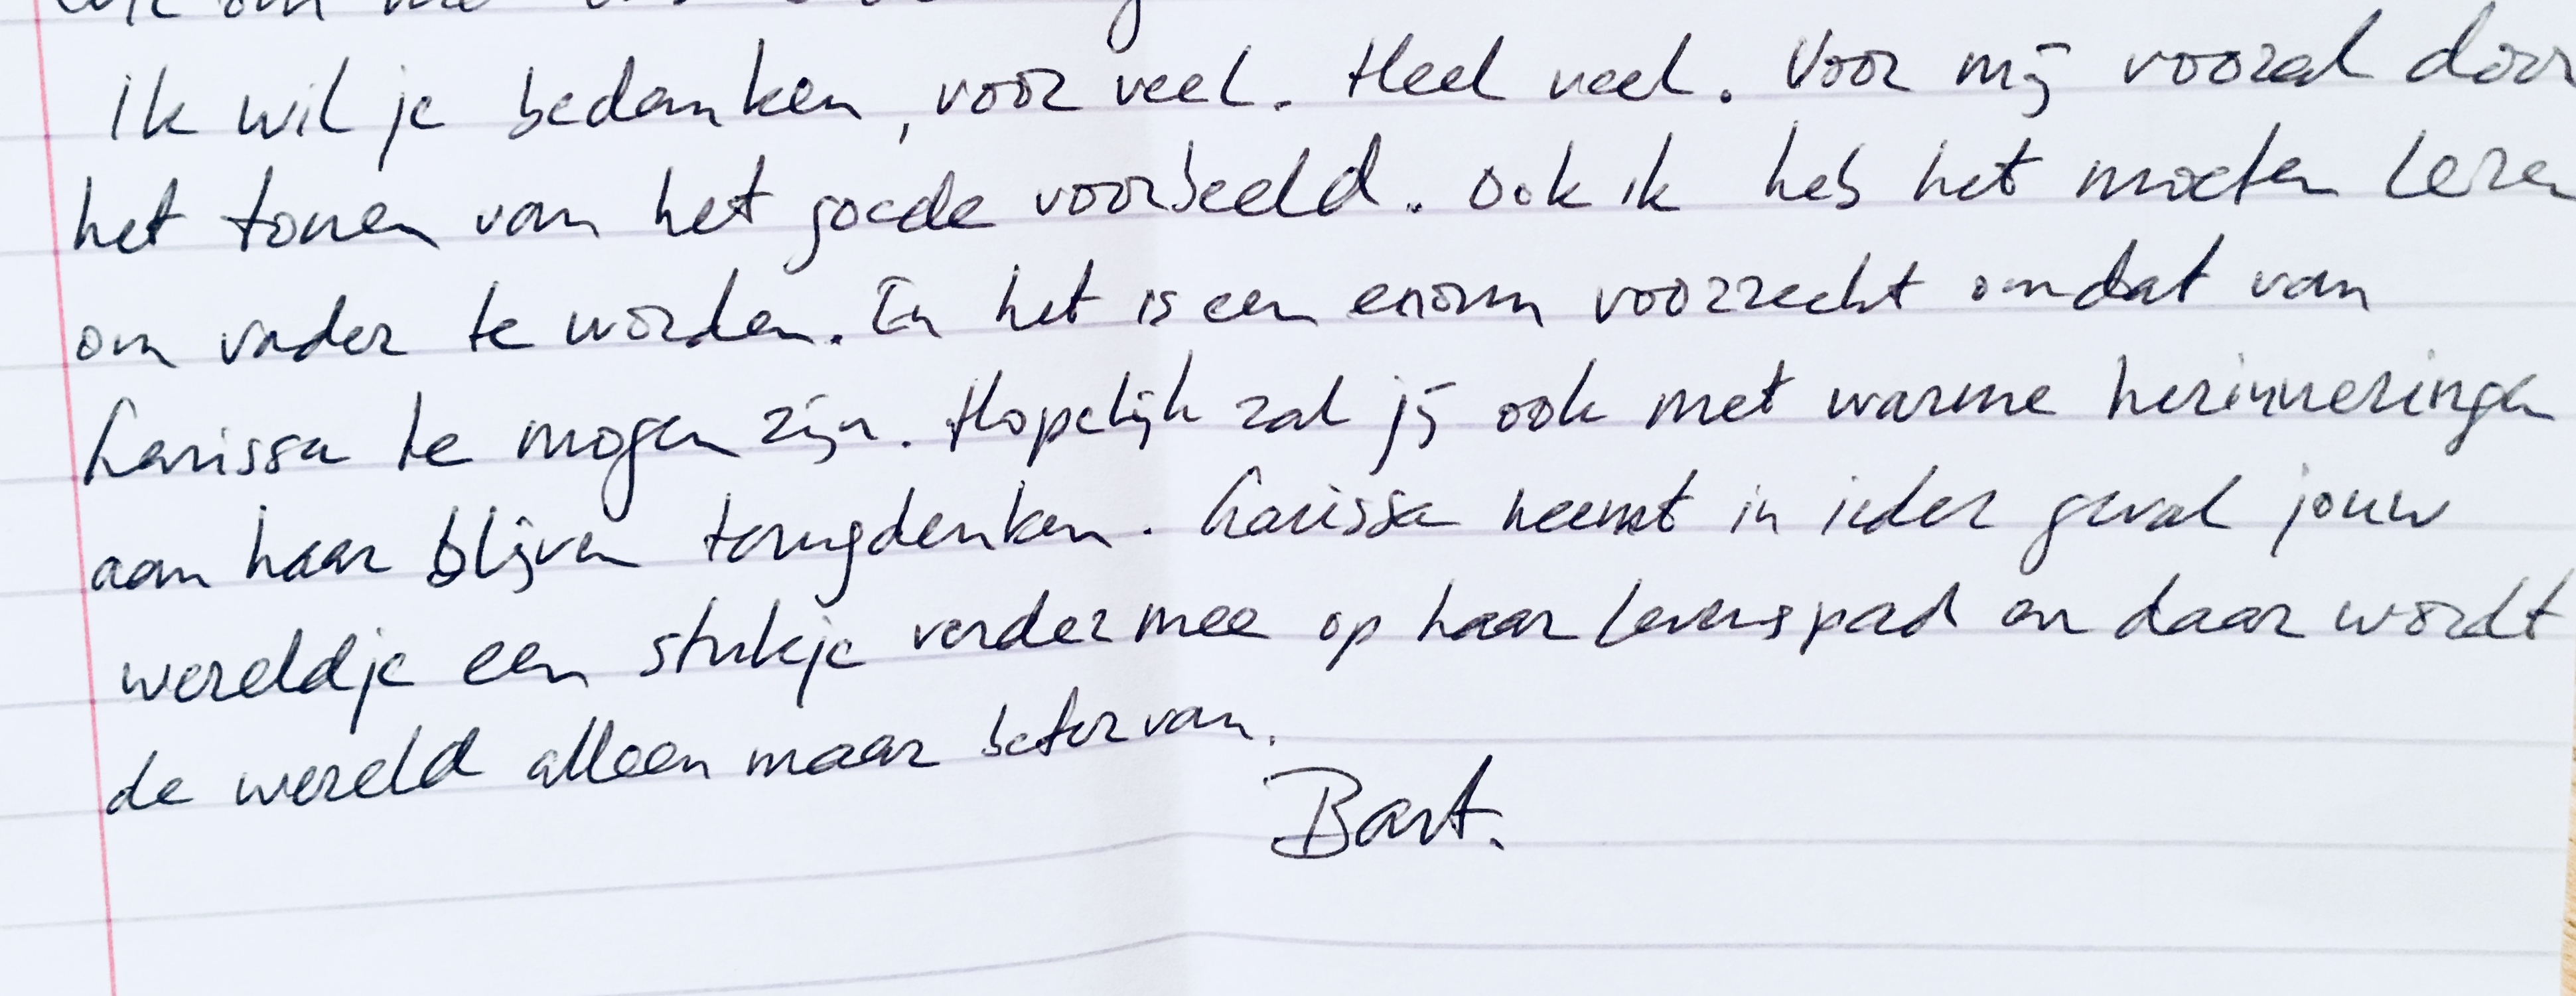 Ik wil je bedanken, voor veel. Heel veel. Voor mij vooral door
het tonen van het goede voorbeeld. Ook ik heb het moeten leren
om vader te worden. En het is een enorm voorrecht omdat van
Larissa te mogen zijn. Hopelijk zal jij ook met warme herinneringen
aan haar blijven terugdenken. Larissa neemt in ieder geval jouw
wereldje een stukje verder mee op haar levenspad en daar wordt
de wereld alleen maar beter van.
Bart.